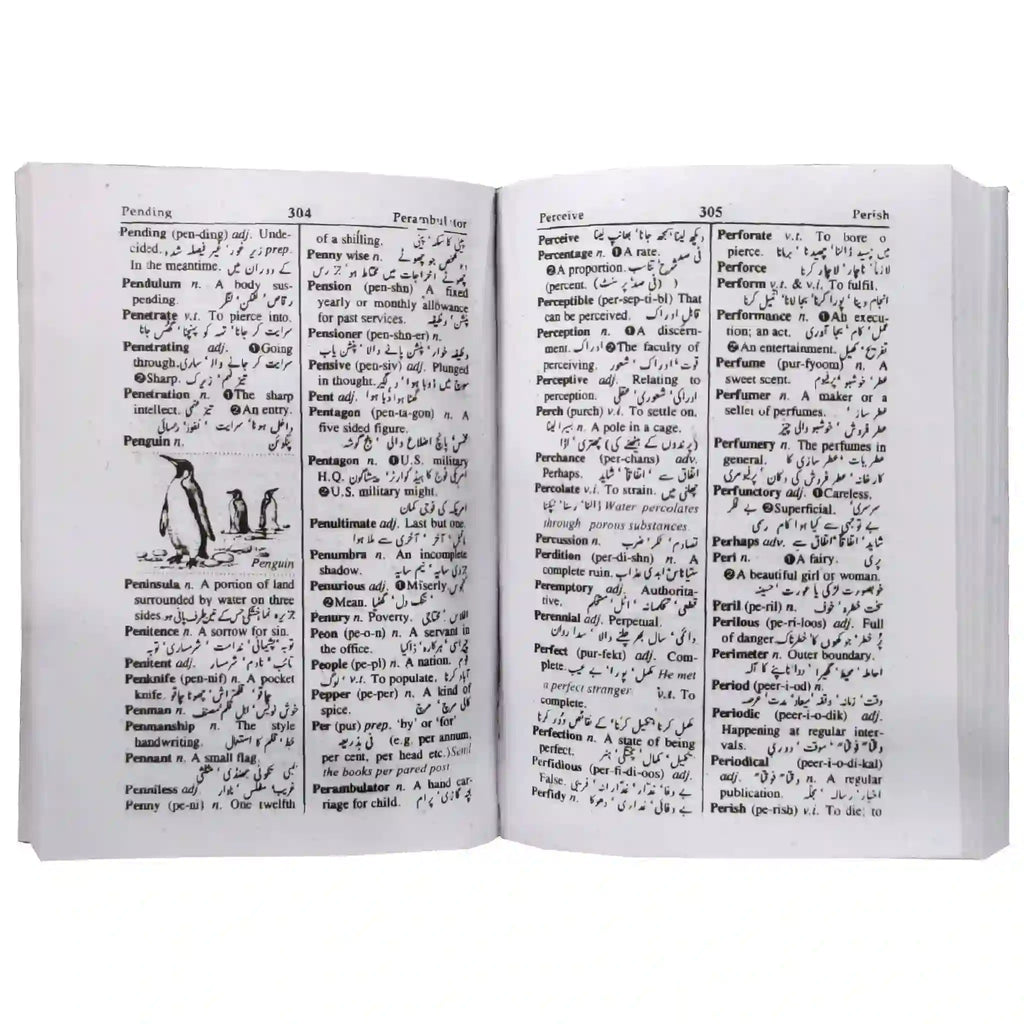 Pending 304 Perambulator
Pending (pen-ding) adj. Unde-
cided. زیر غور، غیر فیصلہ شدہ prep.
In the meantime. کے دوران میں
Pendulum n. A body sus-
pending. رقاص، لنگر
Penetrate v.t. To pierce into.
سرایت کر جانا، تہہ کو پہنچنا، گھس جانا
Penetrating adj. ❶Going
through. سرایت کر جانے والا، ساری
❷Sharp. تیز فہم، زیرک
Penetration n. ❶The sharp
intellect. تیز فہمی ❷An entry.
داخل ہونا، سرایت، نفوذ، رسائی
Penguin n. پنگوئن
Penguin
Peninsula n. A portion of land
surrounded by water on three
sides. جزیرہ نما، خشکی جس کے تین طرف پانی ہو
Penitence n. A sorrow for sin.
توبہ، پشیمانی، ندامت، شرمساری، توبہ
Penitent adj. تائب، نادم، شرمسار
Penknife (pen-nif) n. A pocket
knife. چاقو، قلمتراش، چھوٹا چاقو
Penman n. خوش نویس، اہل قلم، مصنف
Penmanship n. The style
handwriting. خط، قلم کا استعمال
Pennant n. A small flag.
لمبی تکونی جھنڈی
Penniless adj. غریب، مفلس، نادار
Penny (pe-ni) n. One twelfth
of a shilling. پینی کا سکہ، پینی
Penny wise n.
چھوٹے اخراجات میں محتاط
Pension (pen-shn) n. A fixed
yearly or monthly allowance
for past services. پنشن، وظیفہ
Pensioner (pen-shn-er) n.
وظیفہ خوار، پنشن پانے والا، پنشن یاب
Pensive (pen-siv) adj. Plunged
in thought. سوچ میں ڈوبا ہوا، دلگیر
Pent adj. گھٹا ہوا، دبا ہوا
Pentagon (pen-ta-gon) n. A
five sided figure.
مخمس، پانچ اضلاع والی، پنج گوشہ
Pentagon n. ❶U.S. military
H.Q. امریکی فوج کا ہیڈ کوارٹر، پینٹاگون
❷U.S. military might.
امریکہ کی فوجی کمان
Penultimate adj. Last but one.
ماقبل آخر، آخری سے ملا ہوا
Penumbra n. An incomplete
shadow. جزوی سایہ، نیم سایہ
Penurious adj. ❶Miserly. کنجوس
❷Mean. تنگ دل، گھٹیا
Penury n. Poverty. افلاس، محتاجی
Peon (pe-o-n) n. A servant in
the office. چپڑاسی، ہرکارہ، ڈاکیا
People (pe-pl) n. A nation. قوم
لوگ v.t. To populate. آباد کرنا
Pepper (pe-per) n. A kind of
spice. کالی مرچ، مرچ
Per (pur) prep. 'by' or 'for'
فی، بذریعہ (e.g. per annum,
per cent, per head etc.) Send
the books per pared post
Perambulator n. A hand car-
riage for child. بچہ گاڑی، پرام
Perceive 305 Perish
Perceive دیکھ لینا، سمجھ جانا، بھانپ لینا
Percentage n. ❶A rate.
❷A proportion. فی صد شرح، تناسب
(percent. (فی صد، پر سنٹ))
Perceptible (per-sep-ti-bl) That
can be perceived. قابل ادراک
Perception n. ❶A discern-
ment. ادراک ❷The faculty of
perceiving. قوت ادراک، شعور
Perceptive adj. Relating to
perception. ادراکی، شعوری، عقلی
Perch (purch) v.t. To settle on.
بسیرا لینا n. A pole in a cage.
(پرندوں کے بیٹھنے کی) چھتری، اڈا
Perchance (per-chans) adv.
Perhaps. اتفاق سے، اتفاقاً، شاید
Percolate v.t. To strain. چھلنی میں
ڈالنا، رسنا، ٹپکنا Water percolates
through porous substances.
Percussion n. تصادم، ٹکر، ضرب
Perdition (per-di-shn) n. A
complete ruin. ستیاناس، ابدی عذاب
Peremptory adj. Authorita-
tive. قطعی، تحکمانہ، اٹل، مستحکم
Perennial adj. Perpetual.
دائمی، سال بھر چلنے والا، سدا رواں
Perfect (pur-fekt) adj. Com-
plete. مکمل، پورا، بے عیب He met
a perfect stranger v.t. To
complete.
مکمل کرنا، تکمیل کرنا، کے نقائص دور کرنا
Perfection n. A state of being
perfect. تکمیل، کمال، پختگی، ہنر
Perfidious (per-fi-di-oos) adj.
False. بے وفا، غدار، غدارانہ، فریبی
Perfidy n. بے وفائی، غداری، دھوکا
Perforate v.t. To bore o
pierce. میں چھید ڈالنا، چھیدنا، برمانا
Perforce لازماً، ناچار، لاچار کرنا
Perform v.t. & v.i. To fulfil.
انجام دینا، پورا کرنا، بجا لانا، تعمیل کرنا
Performance n. ❶An execu-
tion; an act. عمل، کام، بجا آوری
❷An entertainment. تفریح، کھیل
Perfume (pur-fyoom) n. A
sweet scent. عطر، خوشبو، پرفیوم
Perfumer n. A maker or a
seller of perfumes. عطر ساز
عطر فروش، خوشبو والی چیز
Perfumery n. The perfumes in
general. عطریات، عطر سازی کا
کارخانہ، عطر فروش کی دکان، پرفیومری
Perfunctory adj. ❶Careless.
سرسری، بے فکر ❷Superficial.
بے توجہی سے کیا ہوا کام، رسمی
Perhaps adv. شاید، اتفاقاً، اتفاق سے
Peri n. ❶A fairy. پری
❷A beautiful girl or woman.
خوبصورت لڑکی یا عورت، حسینہ
Peril (pe-ril) n. سخت خطرہ، خوف
Perilous (pe-ri-loos) adj. Full
of danger. پُر خطر، جوکھوں کا، خطرناک
Perimeter n. Outer boundary.
احاطہ، محیط، گھیرا، دور ناپنے کا آلہ
Period (peer-i-od) n.
وقت، زمانہ، وقفہ، میعاد، مدت، عرصہ
Periodic (peer-i-o-dik) adj.
Happening at regular inter-
vals. وقتاً فوقتاً، موقت، دوری
Periodical (peer-i-o-di-kal)
adj. وقتاً فوقتاً n. A regular
publication. اخبار، رسالہ، مجلہ
Perish (pe-rish) v.i. To die; to